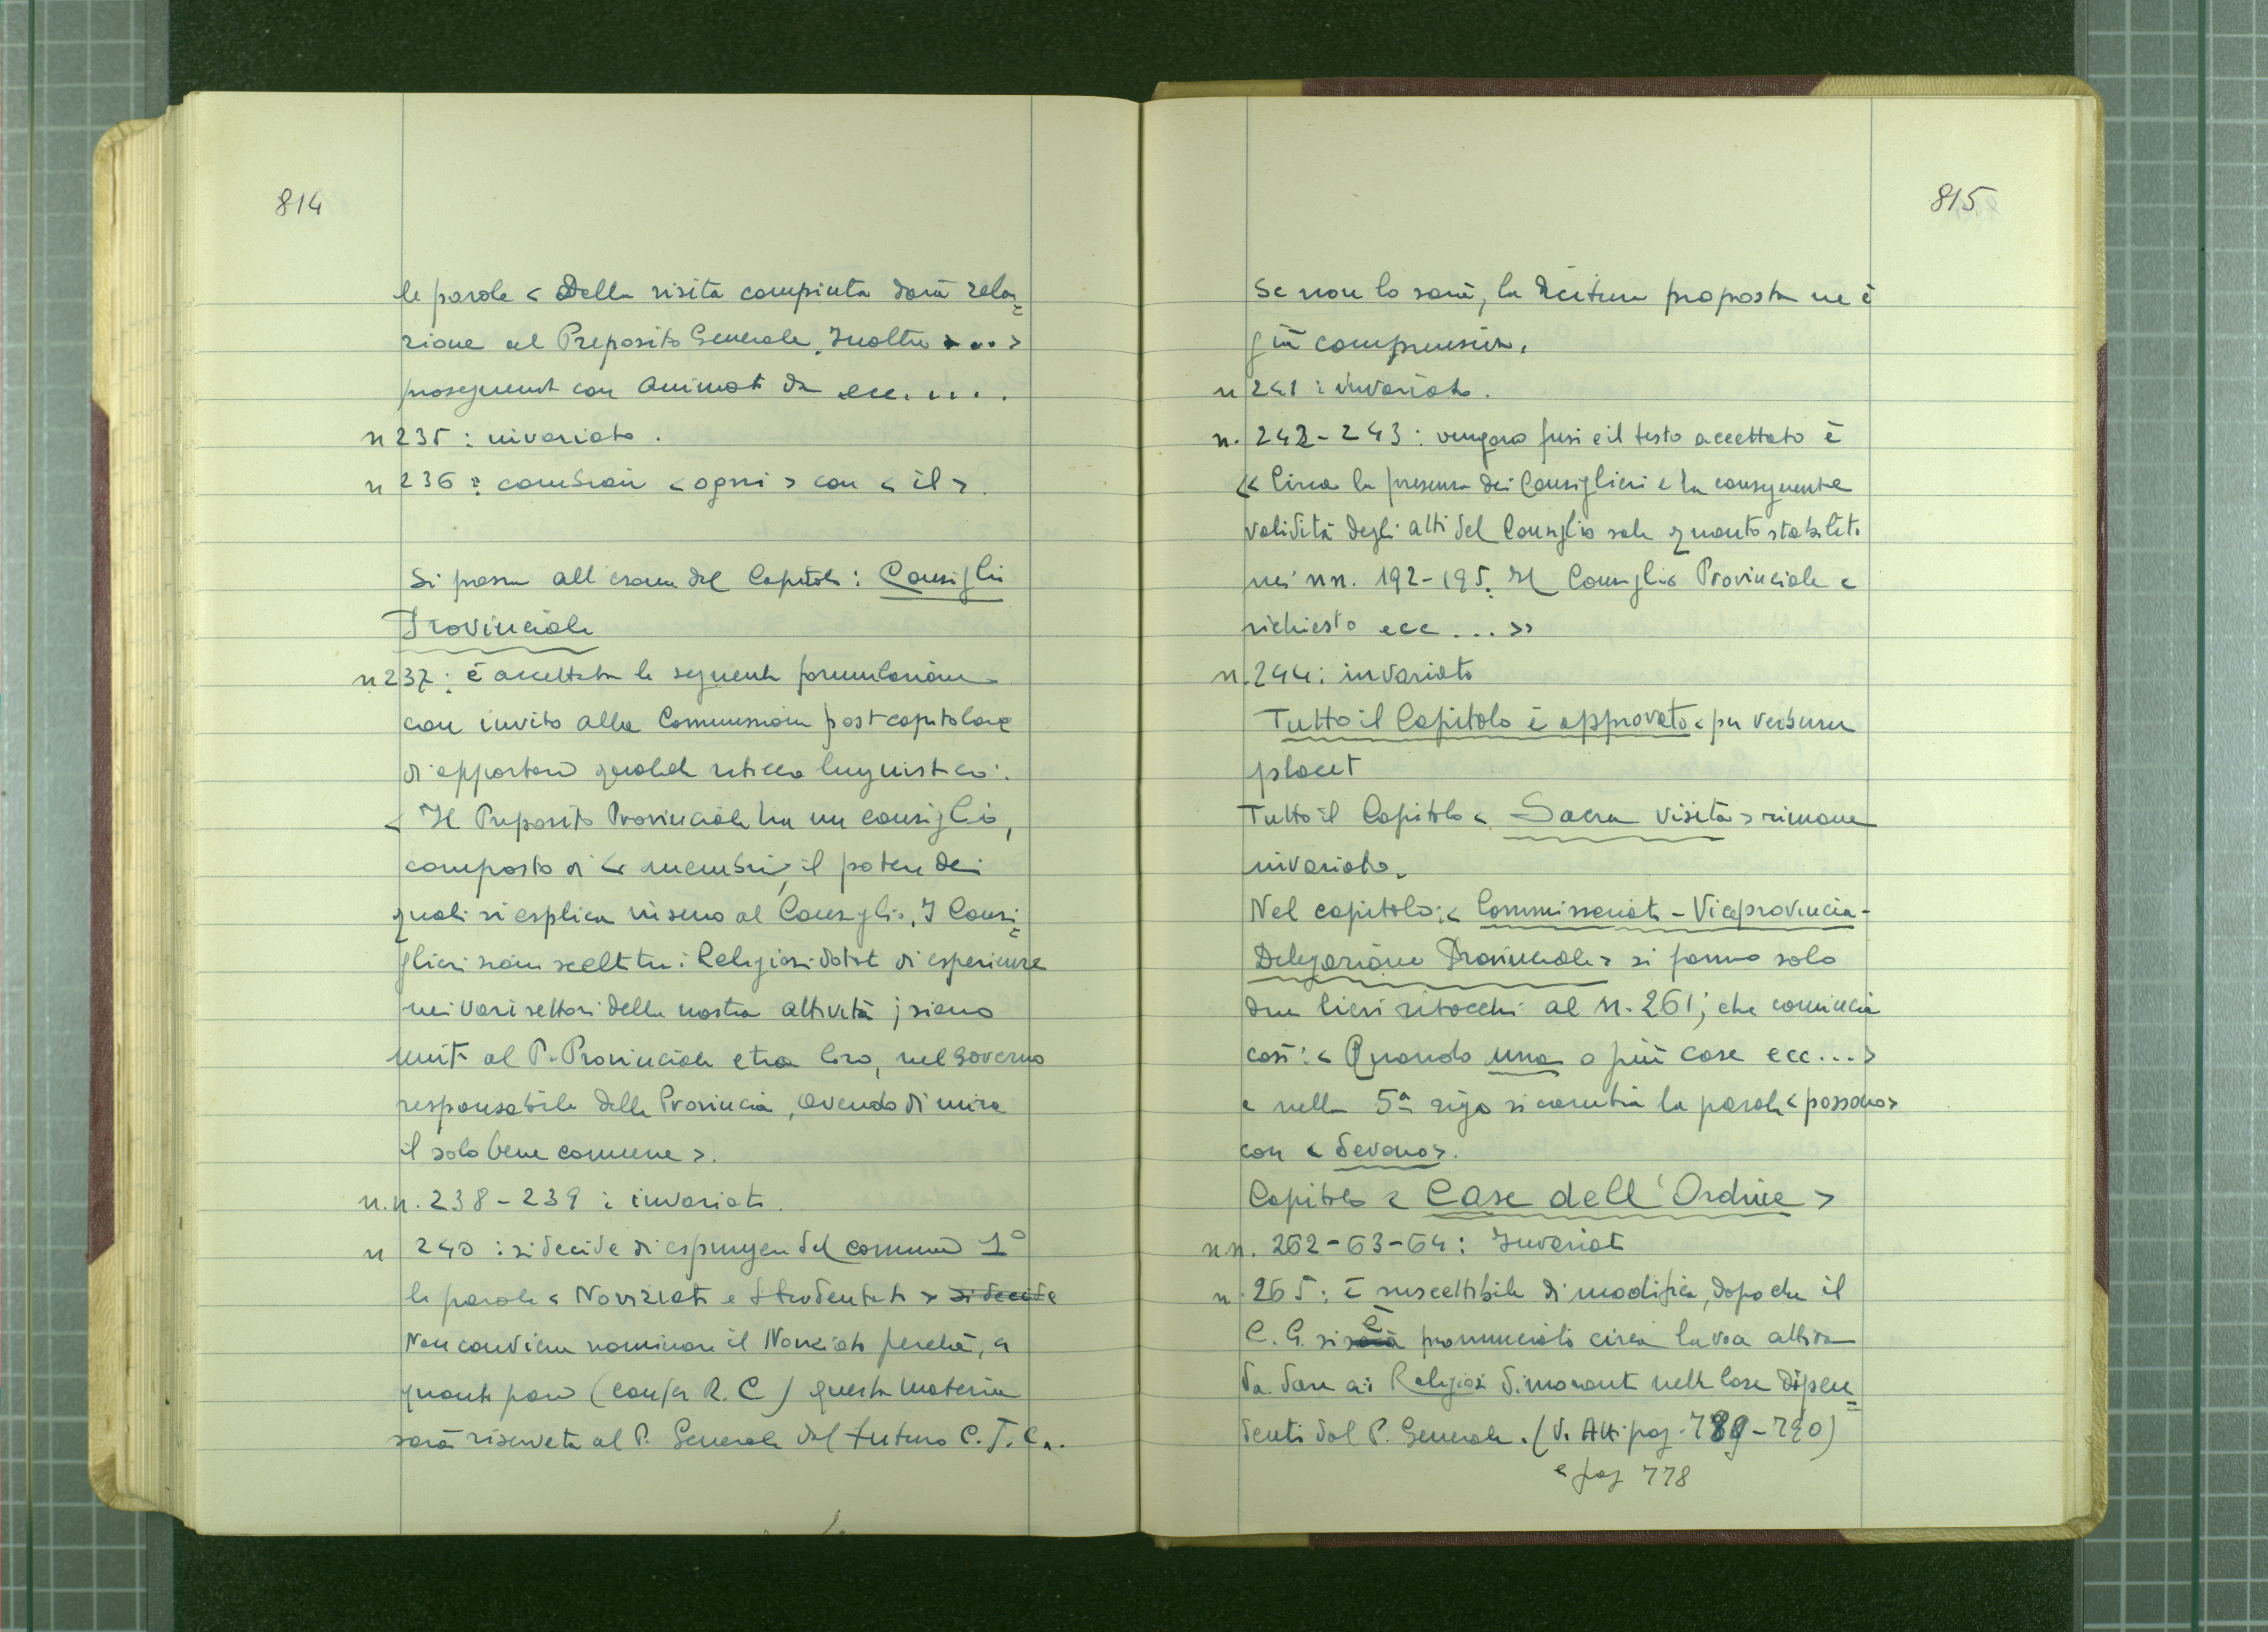 814
le parole < Della visita compiuta darà rela=
zione al Preposito Generale. Inoltre ... >
proseguendo con animati da ecc.....
n 235 : invariato.
n 236 : cambiare < ogni > con < il >.
Si passa all'esame del Capitolo : Consiglio
Provinciale
n 237 : è accettata la seguente formulazione
con invito alla Commissione postcapitolare
di apportare qualche ritocco linguistico :
< Il Preposito Provinciale ha un consiglio,
composto di 4 membri, il potere dei
quali si esplica in seno al Consiglio. I Consi=
glieri siano scelti tra i Religiosi dotati di esperienze
nei vari settori della nostra attività ; siano
uniti al P. Provinciale e tra loro, nel governo
responsabile della Provincia, avendo di mira
il solo bene comune >.
n.n. 238 - 239 : invariati.
n 240 : si decide di espungere dal comma 1°
le parole < Noviziati e Studentati > si decide
Non conviene nominare il Noviziato perché, a
quanto pare (confer R. C) questa materia
sarà riservata al P. Generale dal futuro C.J.C.
815
Se non lo sarà, la dicitura proposta ne è
già comprensiva.
n 241 : invariato.
n. 242 - 243 : vengono fusi e il testo accettato è
<< Circa la presenza dei Consiglieri e la conseguente
validità degli atti del Consiglio vale quanto stabilito
nei nn. 192-195. Il Consiglio Provinciale è
richiesto ecc ... >>
n. 244 : invariato
Tutto il Capitolo è approvato < per verbum
placet
Tutto il Capitolo < Sacra visita > rimane
invariato.
Nel capitolo : < Commissariato - Viceprovincia -
Delegazione Provinciale > si fanno solo
due lievi ritocchi al n. 261; che comincia
così : < Quando una o più case ecc ... >
e nella 5ª riga si cambia la parola < possono >
con < devono >.
Capitolo < Case dell'Ordine >
n.n. 262-63-64 : Invariati
n. 265 : è suscettibile di modifica, dopo che il
C. G. si sarà è pronunciato circa la voce attiva
da dare ai Religiosi dimoranti nelle Case dipen=
denti dal P. Generale. (V. Atti pag. 789-790)
e pag 778